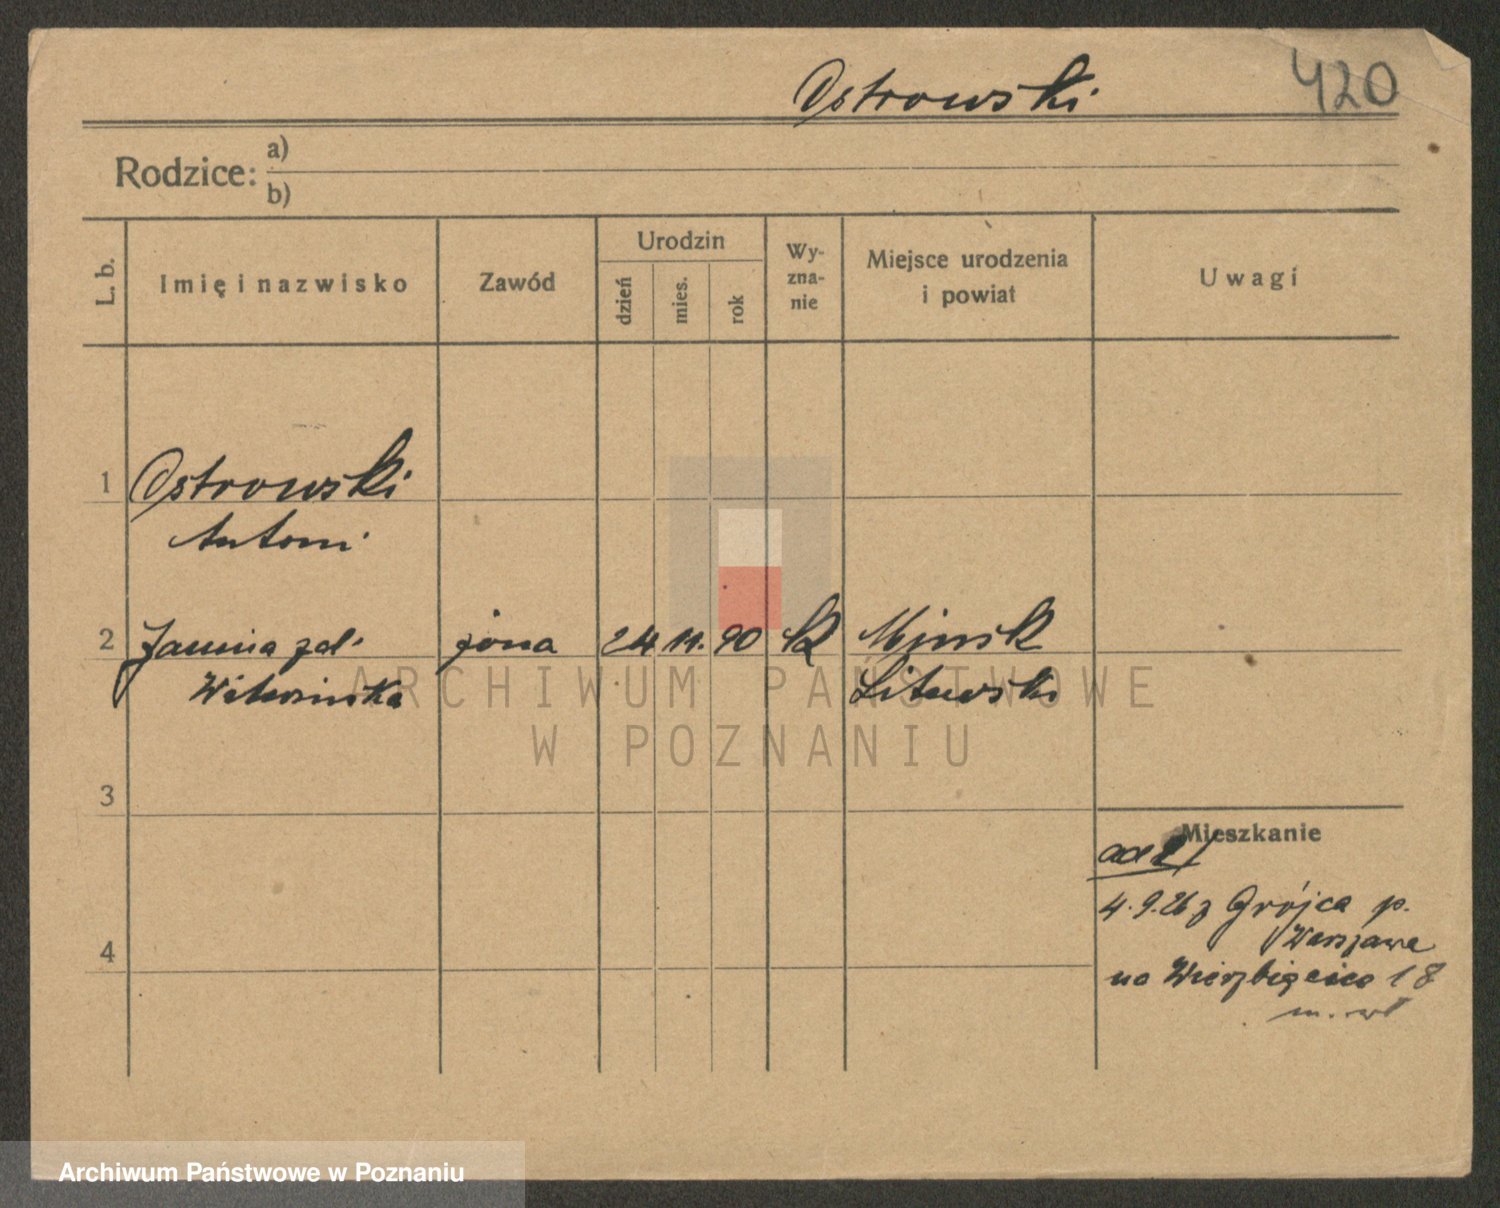 Ostrowski 420
Rodzice: a)
b)
L. b.
Imię i nazwisko
Zawód
Urodzin
dzień
mies.
rok
Wy-
zna-
nie
Miejsce urodzenia
i powiat
Uwagi
1 Ostrowski
Antoni
2 Janina zd. żona 24 11. 90 k Mińsk
Litewski
ARCHIWUM PAŃSTWOWE
W POZNANIU
3
Mieszkanie
ad 2/
4.9.26 z Grójca p.
Warszawa
4
na Wierzbięcice 18
m. wł
Archiwum Państwowe w Poznaniu